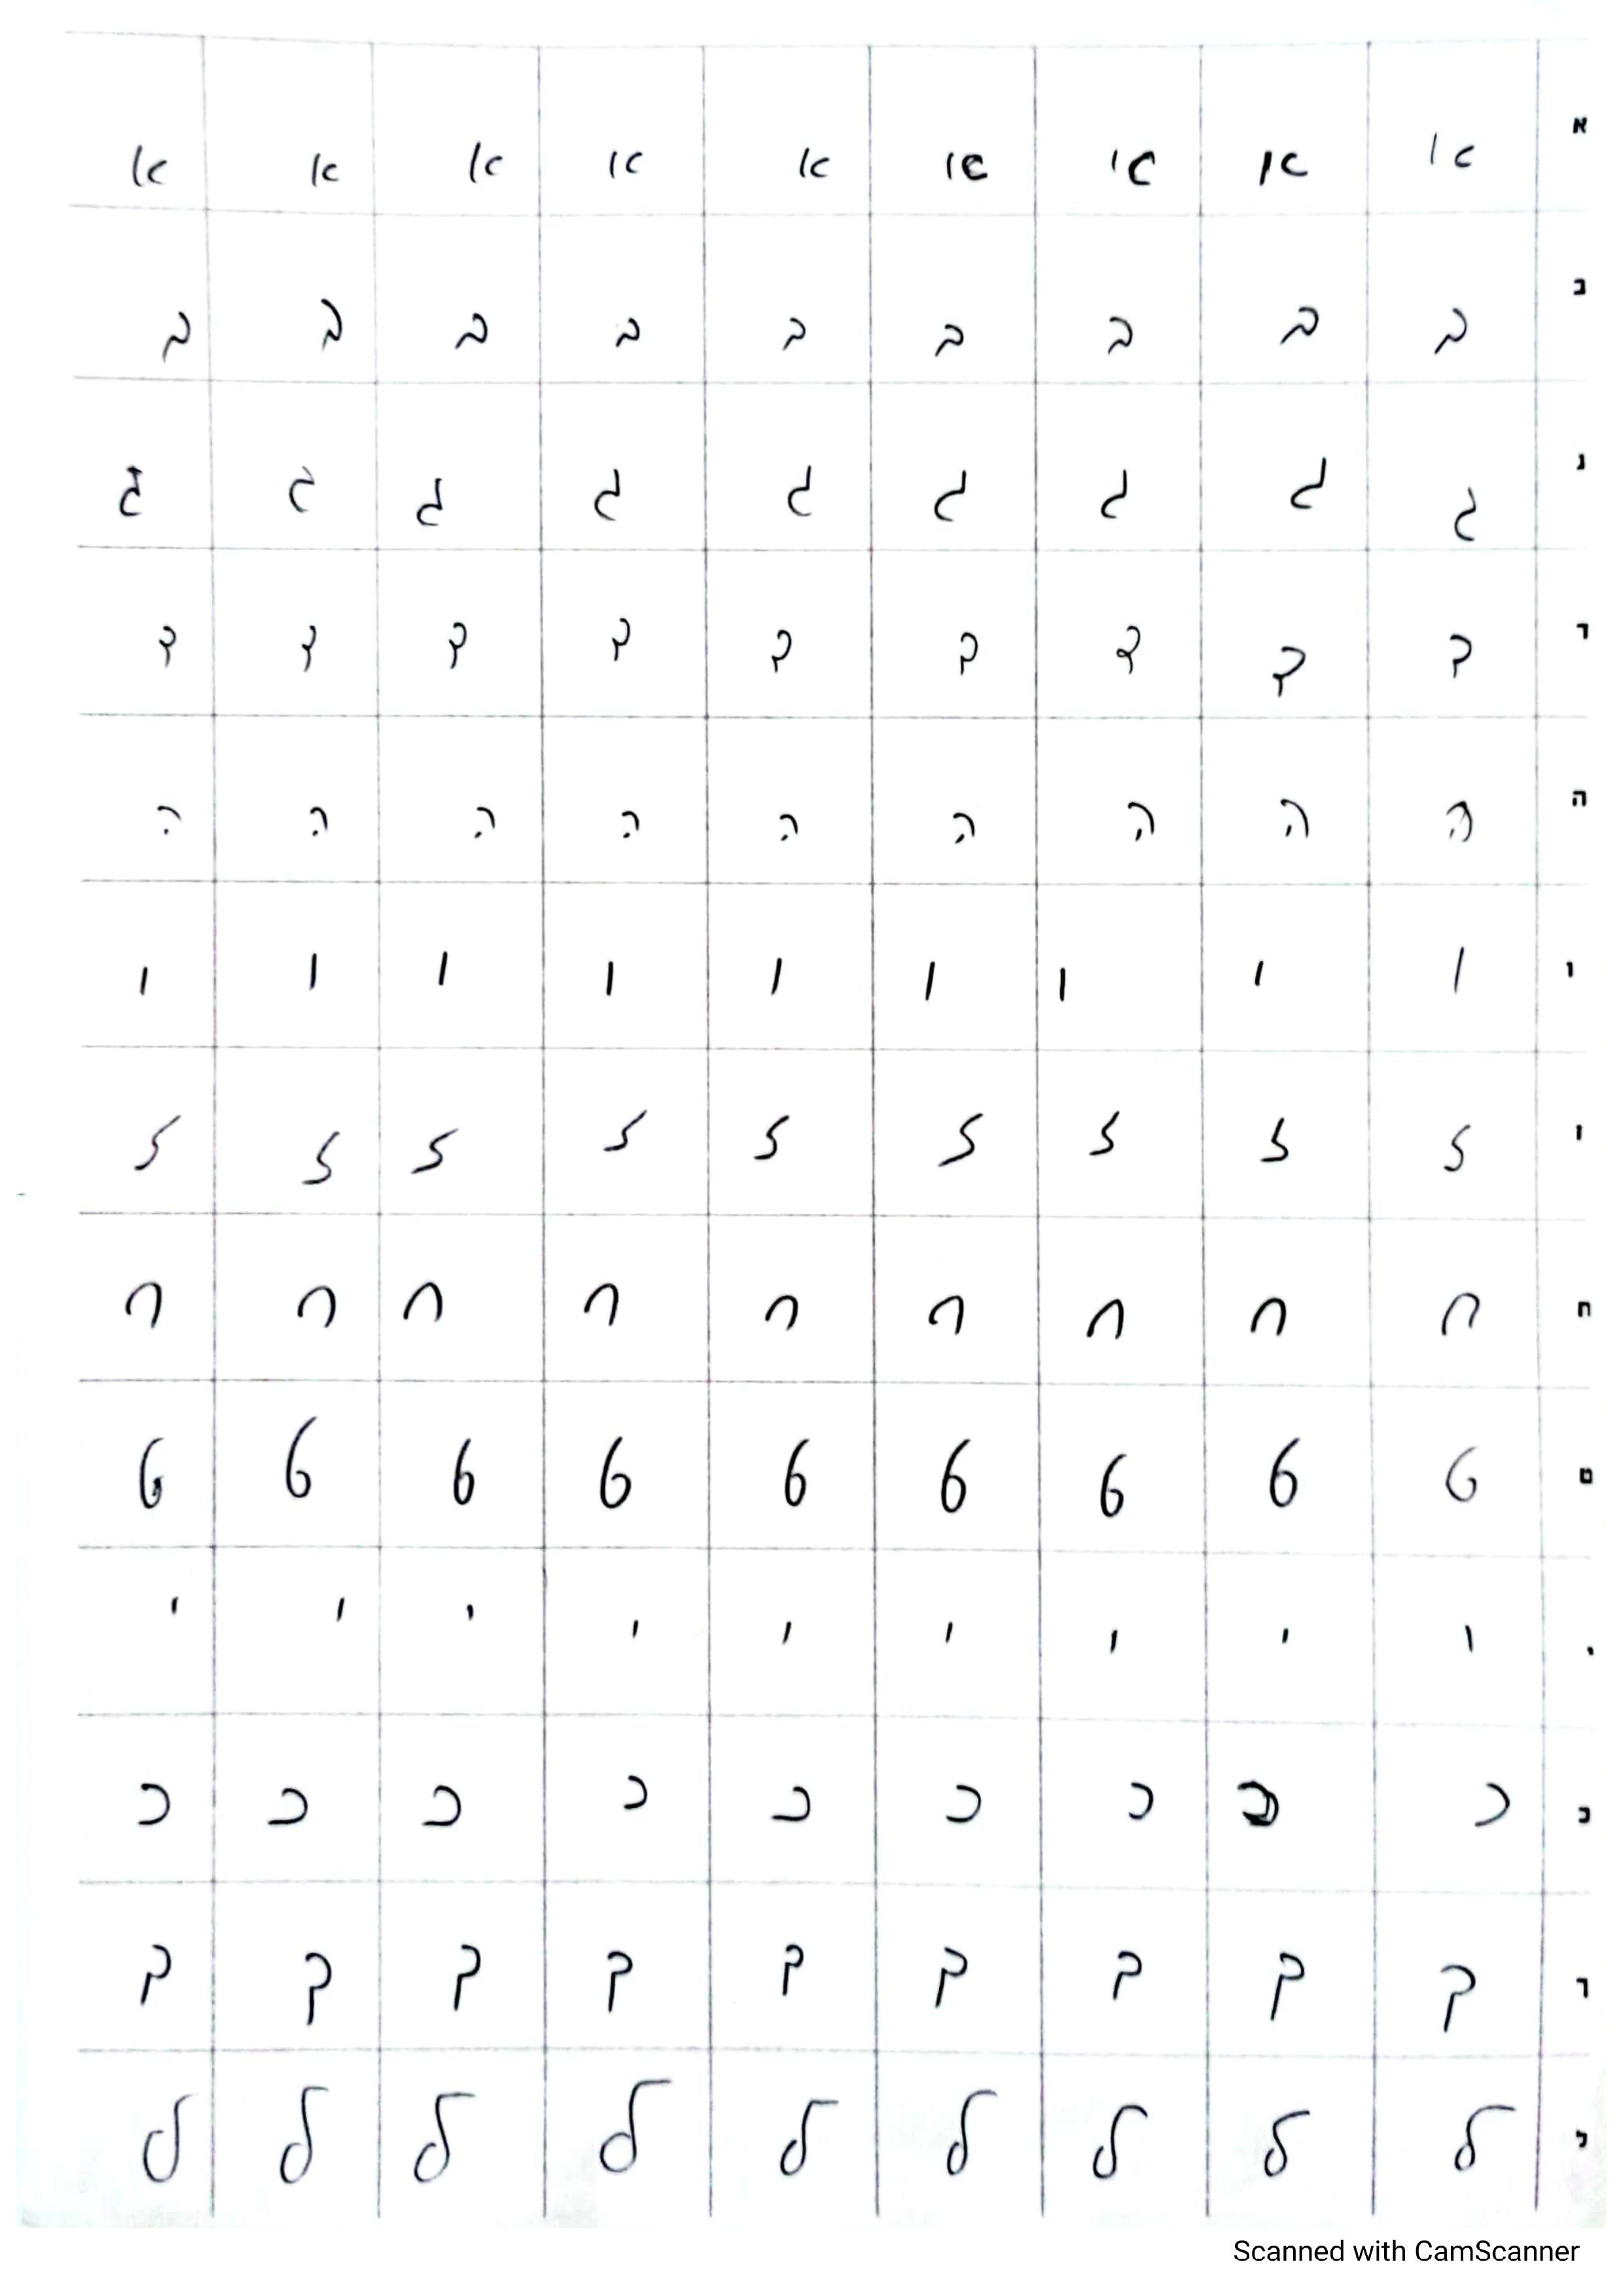 א א א א א א א א א א
ב ב ב ב ב ב ב ב ב ב
ג ג ג ג ג ג ג ג ג ג
ד ד ד ד ד ד ד ד ד ד
ה ה ה ה ה ה ה ה ה ה
ו ו ו ו ו ו ו ו ו ו
ז ז ז ז ז ז ז ז ז ז
ח ח ח ח ח ח ח ח ח ח
ט ט ט ט ט ט ט ט ט ט
י י י י י י י י י י
כ כ כ כ כ כ כ כ כ כ
ך ך ך ך ך ך ך ך ך ך
ל ל ל ל ל ל ל ל ל ל
Scanned with CamScanner